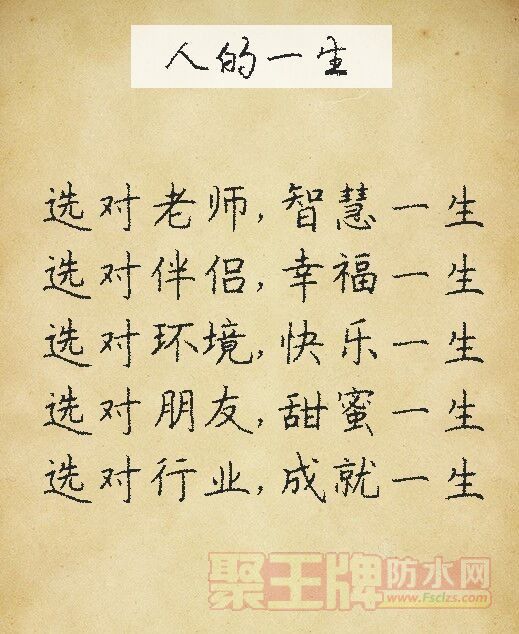 人的一生
选对老师,智慧一生
选对伴侣,幸福一生
选对环境,快乐一生
选对朋友,甜蜜一生
选对行业,成就一生
聚王牌防水网
www.Fsclzs.com